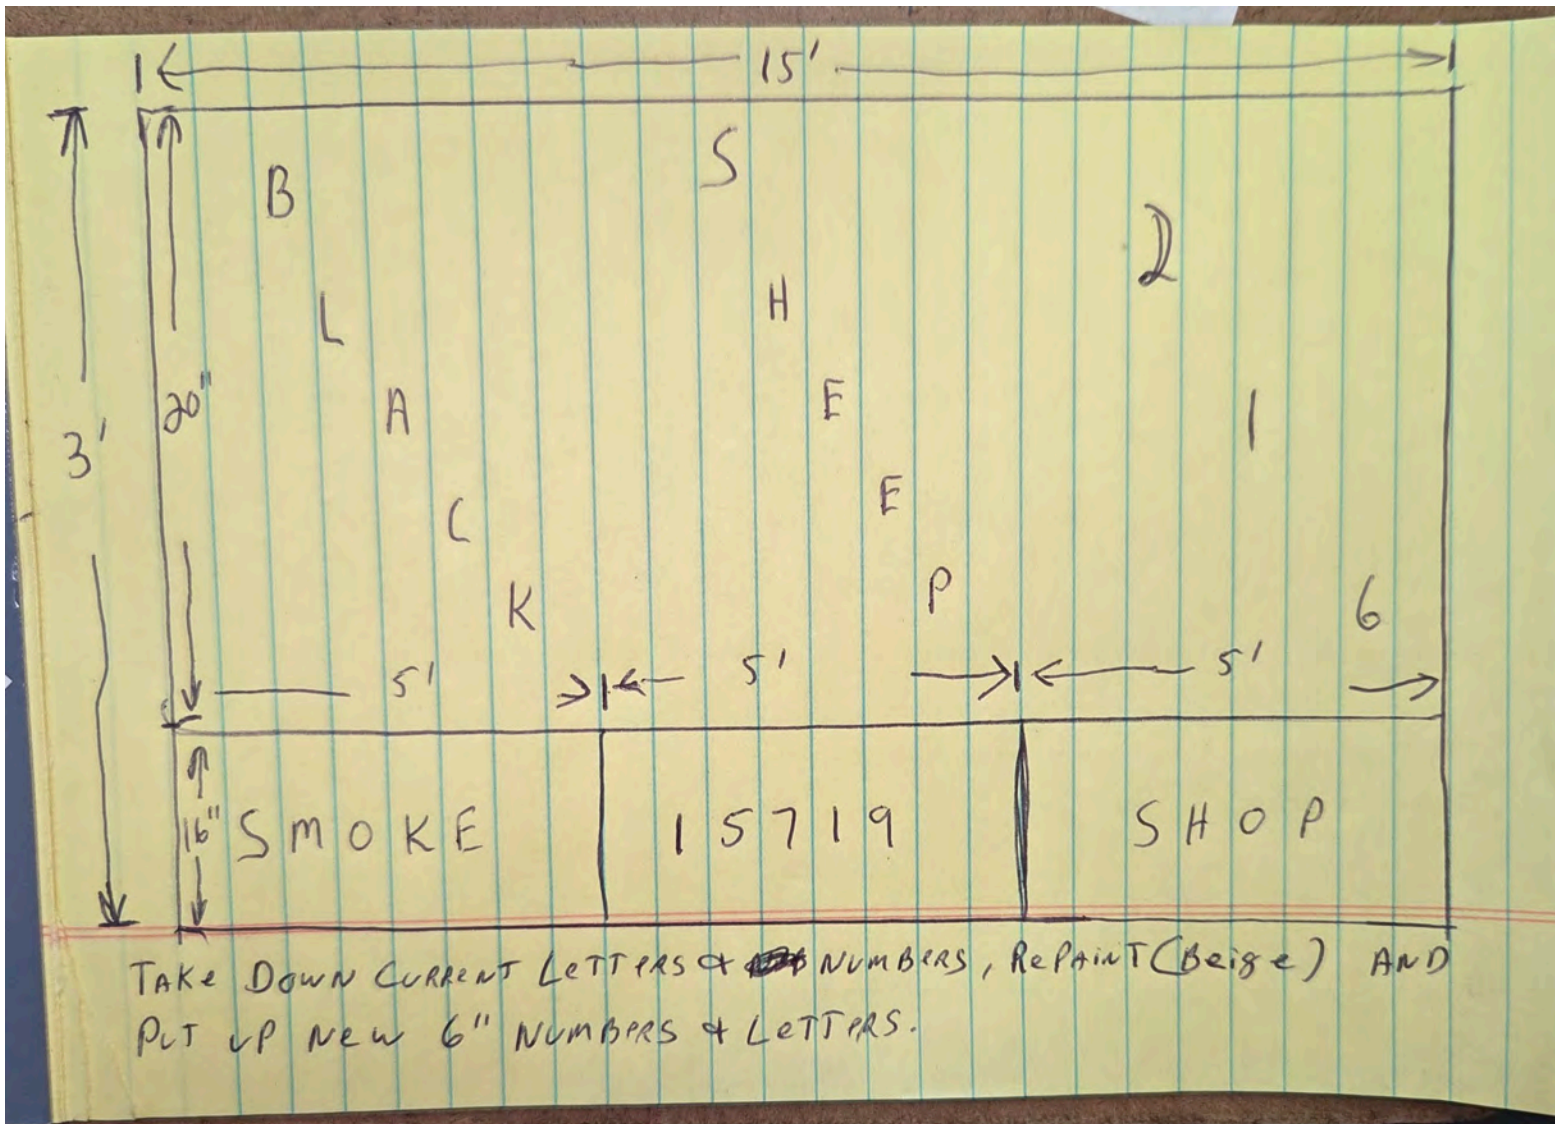 15'
3'
20"
B L A C K
S H E E P
2 1 6
5' 5' 5'
16"
SMOKE 15719 SHOP
TAKE DOWN CURRENT LETTERS & NUMBERS, REPAINT (Beige) AND
PUT UP NEW 6" NUMBERS & LETTERS.